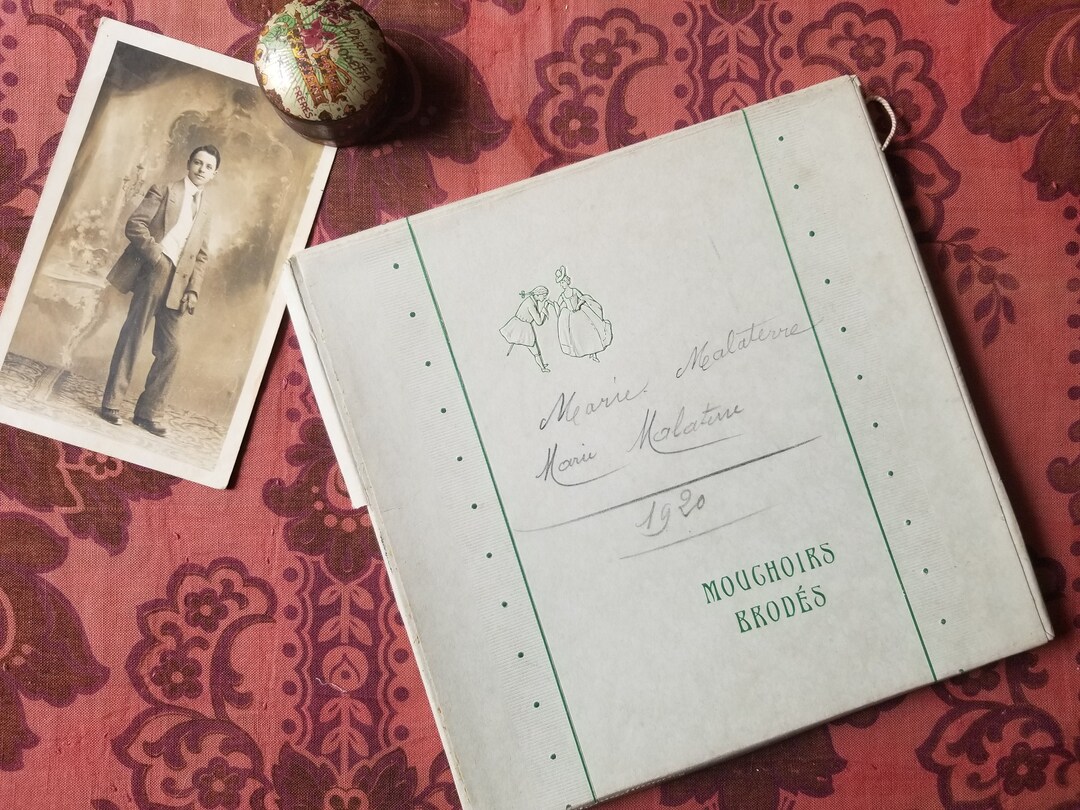 PARMA
FRÈRES
Marie. Malaterre
Marie Malaterre
1920
MOUCHOIRS
BRODÉS